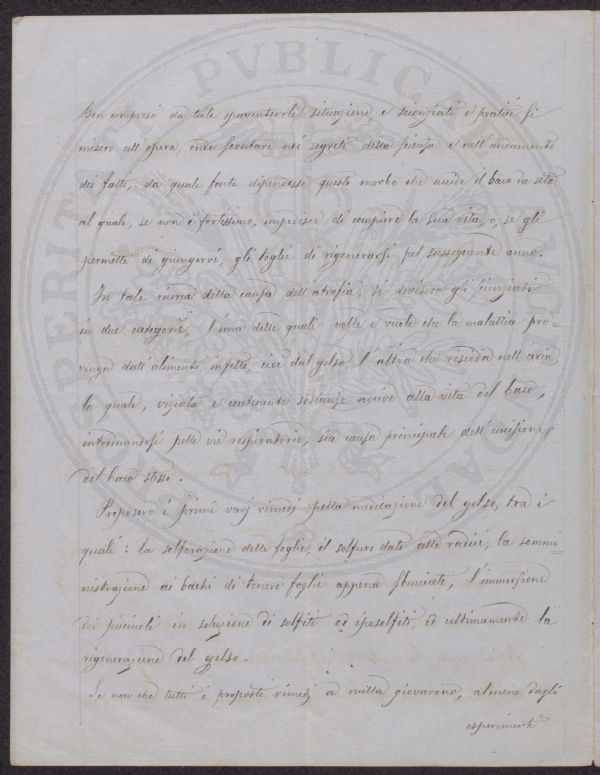 Ben compresi da tale spaventevole situazione, e scienziati e pratici si
misero all'opera, onde scrutare nei segreti della scienza e nell'andamento
dei fatti, da quale fonte dipendesse questo morbo che uccide il baco da seta,
al quale, se non è fortissimo, impedisce di compiere la sua vita, o, se gli
permette di giungervi, gli toglie di rigenerarsi pel susseguente anno.
In tale ricerca della causa dell'atrofia, si divisero gli scienziati
in due categorie, l'una delle quali volle e vuole che la malattia pro-
venga dall'alimento infetto, cioè dal gelso, l'altra che risieda nell'aria,
la quale, viziata e contenente sostanze nocive alla vita del baco,
introducendosi pelle vie respiratorie, sia causa principale dell'uccisione
del baco stesso.
Proposero i primi varj rimedj pella medicazione del gelso, tra i
quali: la solforazione delle foglie, il solfuro dato alle radici, la sommi-
nistrazione ai bachi di tenere foglie appena sbucciate, l'immersione
dei picciuoli in soluzione di solfiti od iposolfiti, ed ultimamente la
rigenerazione del gelso.
Se non che tutti i proposti rimedj a nulla giovarono, almeno dagli
esperimenti
PVBLICAE